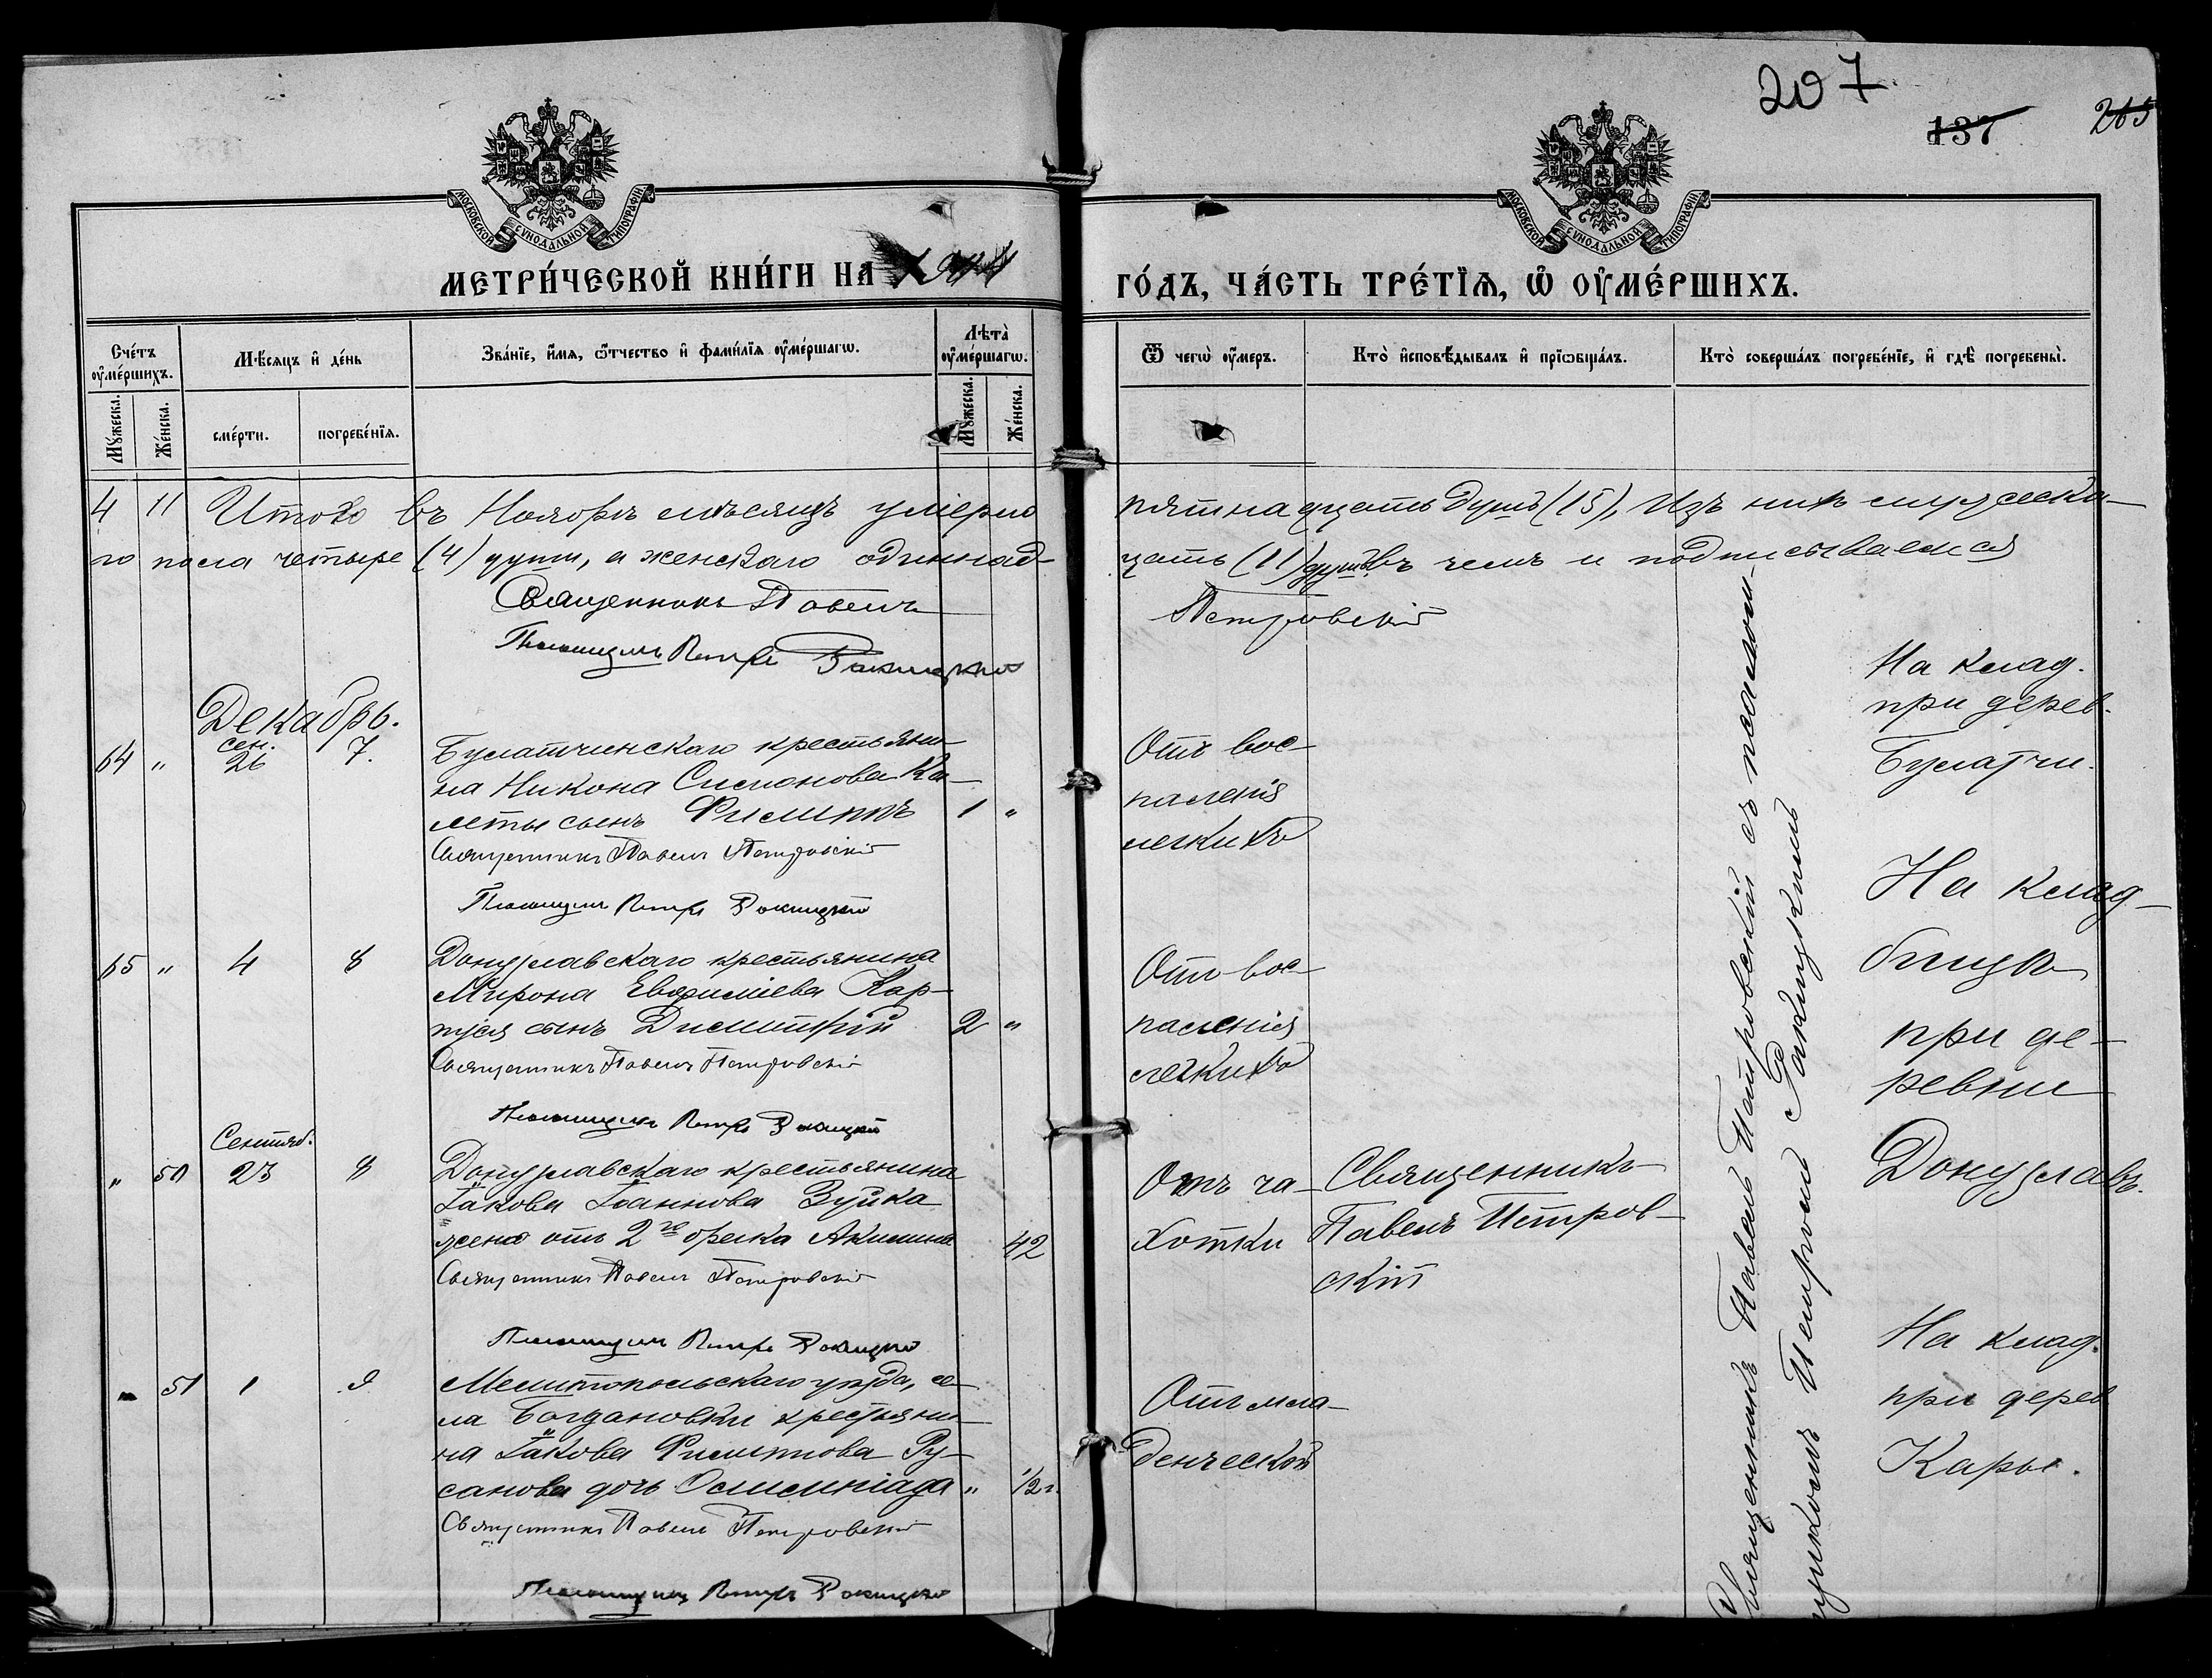 207
137
265
МОСКОВСКОЙ СѴНОДАЛЬНОЙ ТИПОГРАФІИ
МОСКОВСКОЙ СѴНОДАЛЬНОЙ ТИПОГРАФІИ
МЕТРИ́ЧЕСКОЙ КНИ́ГИ НА
ГО́ДЪ, ЧА́СТЬ ТРЕ́ТЇѦ, Ѡ҆ ОУ҆МЕ́РШИХЪ.
Сче́тъ оу҆ме́ршихъ.
Мꙋ́жеска.
Же́нска.
Мѣ́сѧцъ и҆ де́нь
сме́рти.
погребе́нїѧ.
Зва́нїе, и҆́мѧ, ѻ҆́тчество и҆ фами́лїѧ оу҆ме́ршагѡ.
Лѣ̑та̀ оу҆ме́ршагѡ.
Мꙋ́жеска.
Же́нска.
Ѿ чегѡ̀ оу҆́меръ.
Кто̀ и҆сповѣ́дывалъ и҆ прїѡбща́лъ.
Кто̀ соверша́лъ погребе́нїе, и҆ гдѣ̀ погребены̀.
4 11 Итого въ Ноябрѣ мѣсяцѣ умерло пятнадцать душъ (15), Изъ нихъ мужеска-
го пола четыре (4) души, а женскаго одиннад- цать (11) душъ въ чемъ и подписываемся
Священникъ Павелъ Петровскій
Псаломщикъ Петръ Ракицкій
Декабрь.
64 " сен. 26 7. Булатчинскаго крестьяни-
на Никона Симонова Ка-
леты сынъ Филиппъ 1 "
Отъ вос-
паленія
легкихъ
На клад.
при дерев.
Булатчи.
Священникъ Павелъ Петровскій
Псаломщикъ Петръ Ракицкій
65 " 4 8 Донузлавскаго крестьянина
Мирона Евфиміева Кар-
пуся сынъ Димитрій 2 "
Отъ вос-
паленія
легкихъ
На клад-
бищѣ
при де-
ревни
Донузлавъ.
Священникъ Павелъ Петровскій
Псаломщикъ Петръ Ракицкій
" 50 Сентяб. 23 8 Донузлавскаго крестьянина
Іакова Іоаннова Зуйка
жена отъ 2го брака Акилина 42
Отъ ча-
хотки
Священникъ
Павелъ Петров-
скій
Священникъ Павелъ Петровскій
Псаломщикъ Петръ Ракицкій
" 51 1 9 Мелитопольскаго уѣзда, се-
ла Богдановки крестьяни-
на Іакова Филиппова Ру-
санова дочь Олимпіада " 1/2 г.
Отъ мла-
денческой
На клад.
при дерев
Кары.
Священникъ Павелъ Петровскій
Псаломщикъ Петръ Ракицкій
Священникъ Павелъ Петровскій съ псалом-
щикомъ Петромъ Ракицкимъ